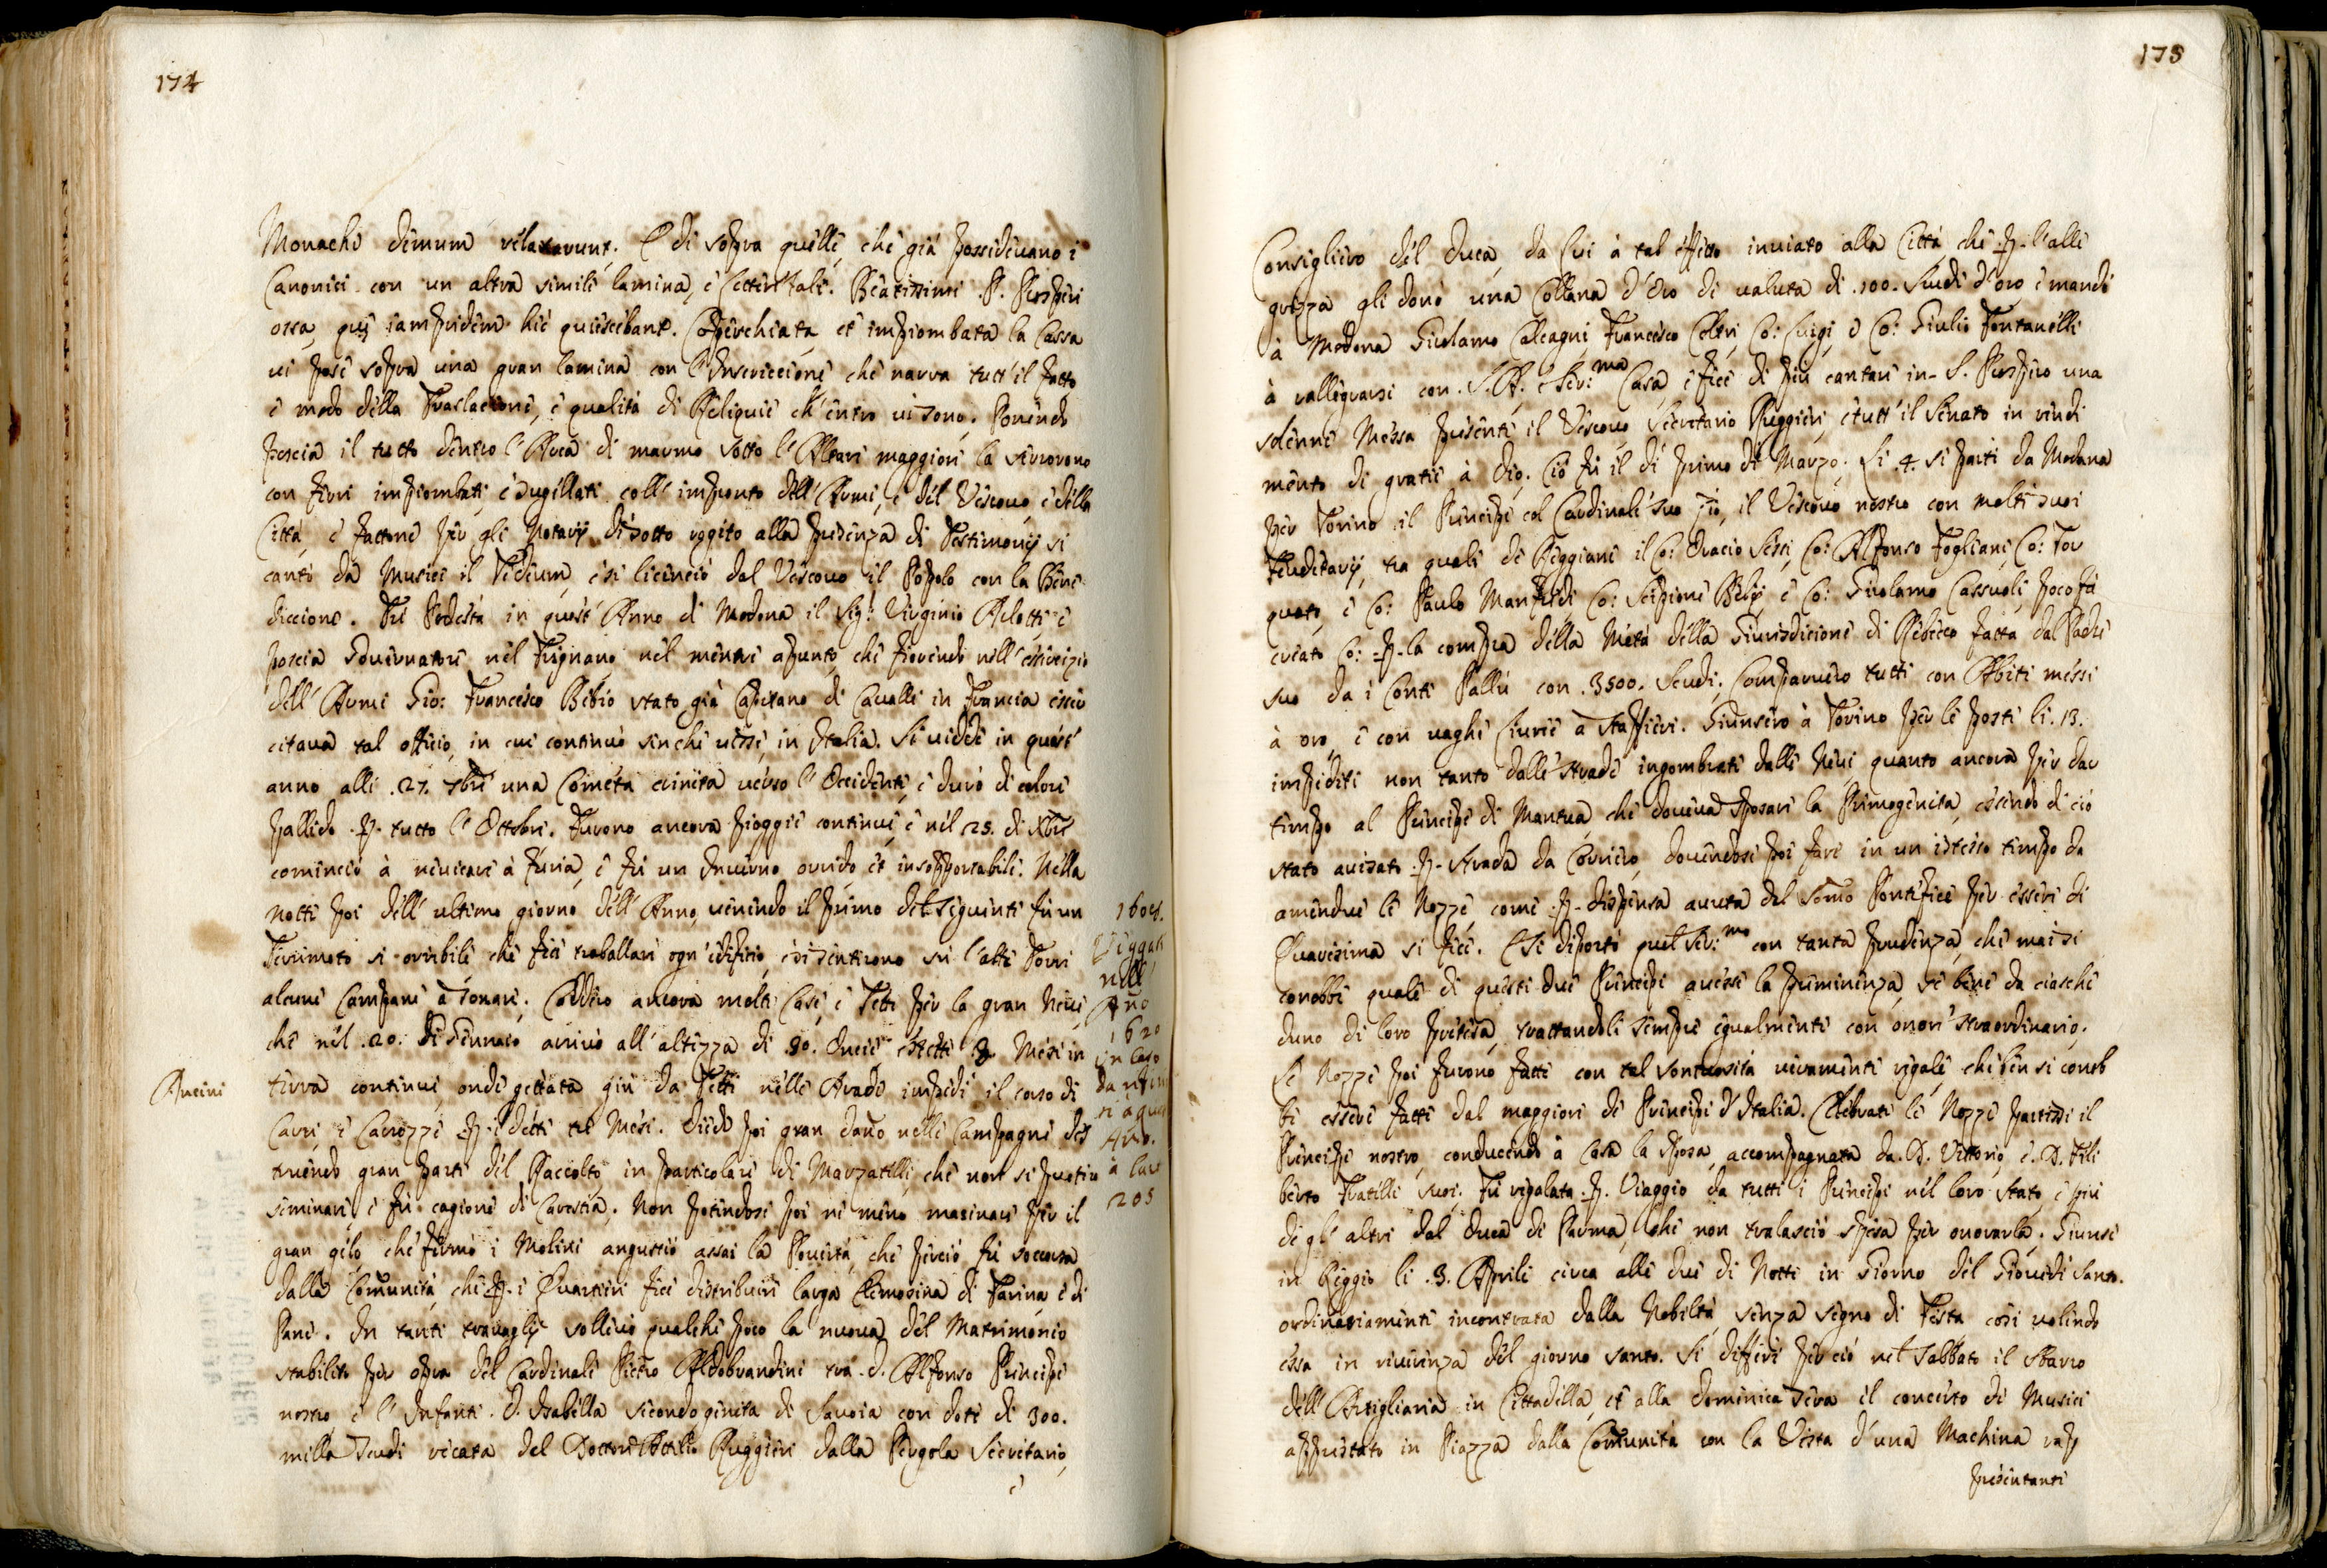 174
Monachi demum relaxarunt. E di sopra quelle, che già possedeuano i
Canonici con un altra simile lamina, e lettere tali. Beatissimi P. Prosperi
ossa, quę iampridem hic quiescebant. Coperchiata et impiombata la Cassa
ui pose sopra una gran lamina con l'Inscriccione che narra tutt'il fatto
e modo della Traslacione, e qualità di Reliquie ch'entro ui sono. Ponendo
poscia il tutto dentro l'Arca di marmo sotto l'Altare maggiore la serrorono
con ferri impiombati, e sugillati coll'impronto dell'Armi, e del Vescouo e della
Città, e fattone per gli Notarij di sotto roggito alla presenza di Testimonij si
cantò da Musici il Tedeum, e si licenciò dal Vescouo il Popolo con la Bene-
diccione. Fu Podestà in quest'Anno di Modona il Sig.r Virginio Arlotti, e
poscia Gouernatore nel Frignano nel mentre apunto, che fiorendo nell'essercizio
dell'Armi Gio: Francesco Bebio stato già Capitano di Caualli in Francia esser
citaua tal officio, in cui continuò sinche uisse, in Italia. Si uidde in quest'
anno alli .27. 7bre una Cometa crinita uerso l'Occidente, e durò di colore
pallido p. tutto l'Ottobre. Furono ancora pioggie continue, e nel 25. di Xbre
cominciò à neuicare à furia, e fu un Inuerno orrido et insopportabile. Nella
notte poi dell'ultimo giorno dell'Anno, uenendo il primo del seguente fu un
Terremoto si orribile che fece traballare ogn'edificio, e si sentirono su l'alte Torri
alcune Campane a sonare. Caddero ancora molte Case, e Tetti per la gran Neue,
che nel .20. di Gennaio arriuò all'altezza di .30. Oncie e stette .3. Mesi in
terra continui, onde gettata giù da Tetti nelle strade impedì il corso di
Carri e Carozze p. i detti tre Mesi. Diede poi gran daño nelle Campagne des
truendo gran parte del Raccolto, in particolare di Marzatelli, che non si puotero
seminare, e fu cagione di Carestia. Non potendosi poi ne meno masinare per il
gran gelo, che fermò i Molini angustiò assai la Pouertà, che perciò fu soccorsa
dalla Comunità, che p. i Quartieri fece distribuire larga Elemosina di Farina e di
Pane. In tanti trauaglij solleuò qualche poco la nuoua del Matrimonio
stabilito per opra del Cardinale Pietro Aldobrandini tra D. Alfonso Principe
nostro e l'Infante D. Isabella secondogenita di Sauoia con dote di 300.
milla Scudi recata del Dottore Attilio Ruggieri dalla Pergola Secretario,
e
Ancini
1608.
nell'
Año
1620
in Caso
Año.
à Car
205
175
Consigliero del Duca, da lui à tal effetto inuiato alla Città, che p. l'alle
grezza gli donò una Collana d'Oro di ualuta di .100. Scudi d'oro e mandò
à Modona Girolamo Calcagni, Francesco Coltri, Co: Luigi e Co: Giulio Fontanelli
à rallegrarsi con S. A. e Ser:ma Casa, e fece di più cantare in S. Prospero una
solenne Messa presente il Vescouo, Secretario Ruggieri, e tutt'il Senato in rendi
mento di gratie à Dio. Ciò fu il dì primo di Marzo. Li .4. si partì da Modona
per Torino il Principe col Cardinale suo Zio, il Vescouo nostro con molti suoi
Feudetarij, tra quali de Reggiani il Co: Oracio Sessi, Co: Alfonso Fogliani, Co: Tor
quato, e Co: Paulo Manfredi Co: Scipione Belgi, e Co: Girolamo Cassuoli poco fà
creato Co: p. la compra della Metà della Giurisdicione di Rebecco fatta dal Padre
suo da i Conti Pallù con .3500. Scudi. Comparuero tutti con Abiti messi
à oro, e con uaghe liuree a staffieri. Giunsero à Torino per le poste li .13.
impediti non tanto dalle strade ingombrate dalle Neui quanto ancora per dar
tempo al Principe di Mantua, che doueua sposare la Primogenita, essendo di ciò
stato auisato p. strada da Corriero, douendosi poi fare in un istesso tempo da
amendue le Nozze, come p. dispensa auuta del Somo Pontefice per essere di
Quaresima si fece. E si diportò quel Ser:mo con tanta prudenza, che mai si
conobbe quale di questi due Principi auesse la preminenza, se bene da ciasche
duno di loro pretesa, trattandoli sempre egualmente con onore straordinario.
Le Nozze poi furono fatte con tal sontuosità ueramente regale, che ben si conob
be essere fatte dal maggiore de Principi d'Italia. Celebrate le Nozze partissi il
Principe nostro, conducendo à Casa la sposa, accompagnata da D. Vittorio, e D. Fili
berto Fratelli suoi. Fu regalata p. Viaggio da tutti i Principi nel loro Stato, e più
de gl'altri dal Duca di Parma, che non tralasciò spesa per onorarla. Giunse
in Reggio li .3. Aprile circa alle due di Notte in Giorno del Giouedì Santo.
ordinariamente incontrata dalla Nobiltà senza segno di Festa così uolendo
essa in riuerenza del giorno santo. Si differì perciò nel sabbato il sbarro
dell'Artigliaria in Cittadella, et alla Dominica sera il concerto di Musici
appuntato in Piazza dalla Comunità con la Vista d'una Machina rap
presentante